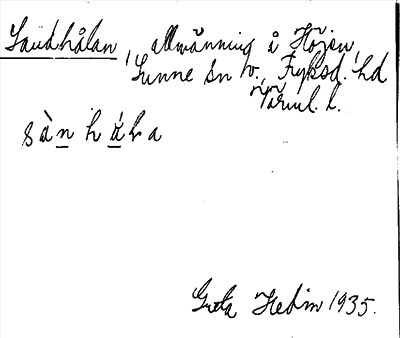 Sandhålan, allmänning å Höjen,
Sunne sn v., Fryksd. hd
Värml. l.
sà̱n há̱la
Greta Hedin 1935.